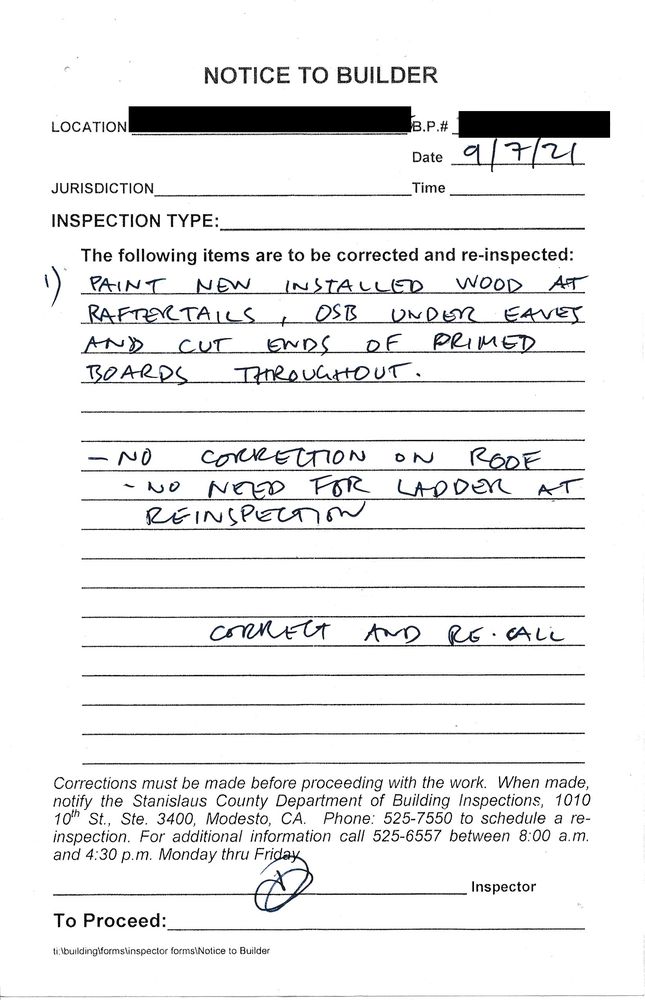 NOTICE TO BUILDER
LOCATION B.P.#
Date 9/7/21
JURISDICTION Time
INSPECTION TYPE:
The following items are to be corrected and re-inspected:
1) PAINT NEW INSTALLED WOOD AT
RAFTERTAILS, OSB UNDER EAVES
AND CUT ENDS OF PRIMED
BOARDS THROUGHOUT.
- NO CORRECTION ON ROOF
- NO NEED FOR LADDER AT
REINSPECTION
CORRECT AND RE-CALL
Corrections must be made before proceeding with the work. When made,
notify the Stanislaus County Department of Building Inspections, 1010
10th St., Ste. 3400, Modesto, CA. Phone: 525-7550 to schedule a re-
inspection. For additional information call 525-6557 between 8:00 a.m.
and 4:30 p.m. Monday thru Friday
Inspector
To Proceed:
ti:\building\forms\inspector forms\Notice to Builder